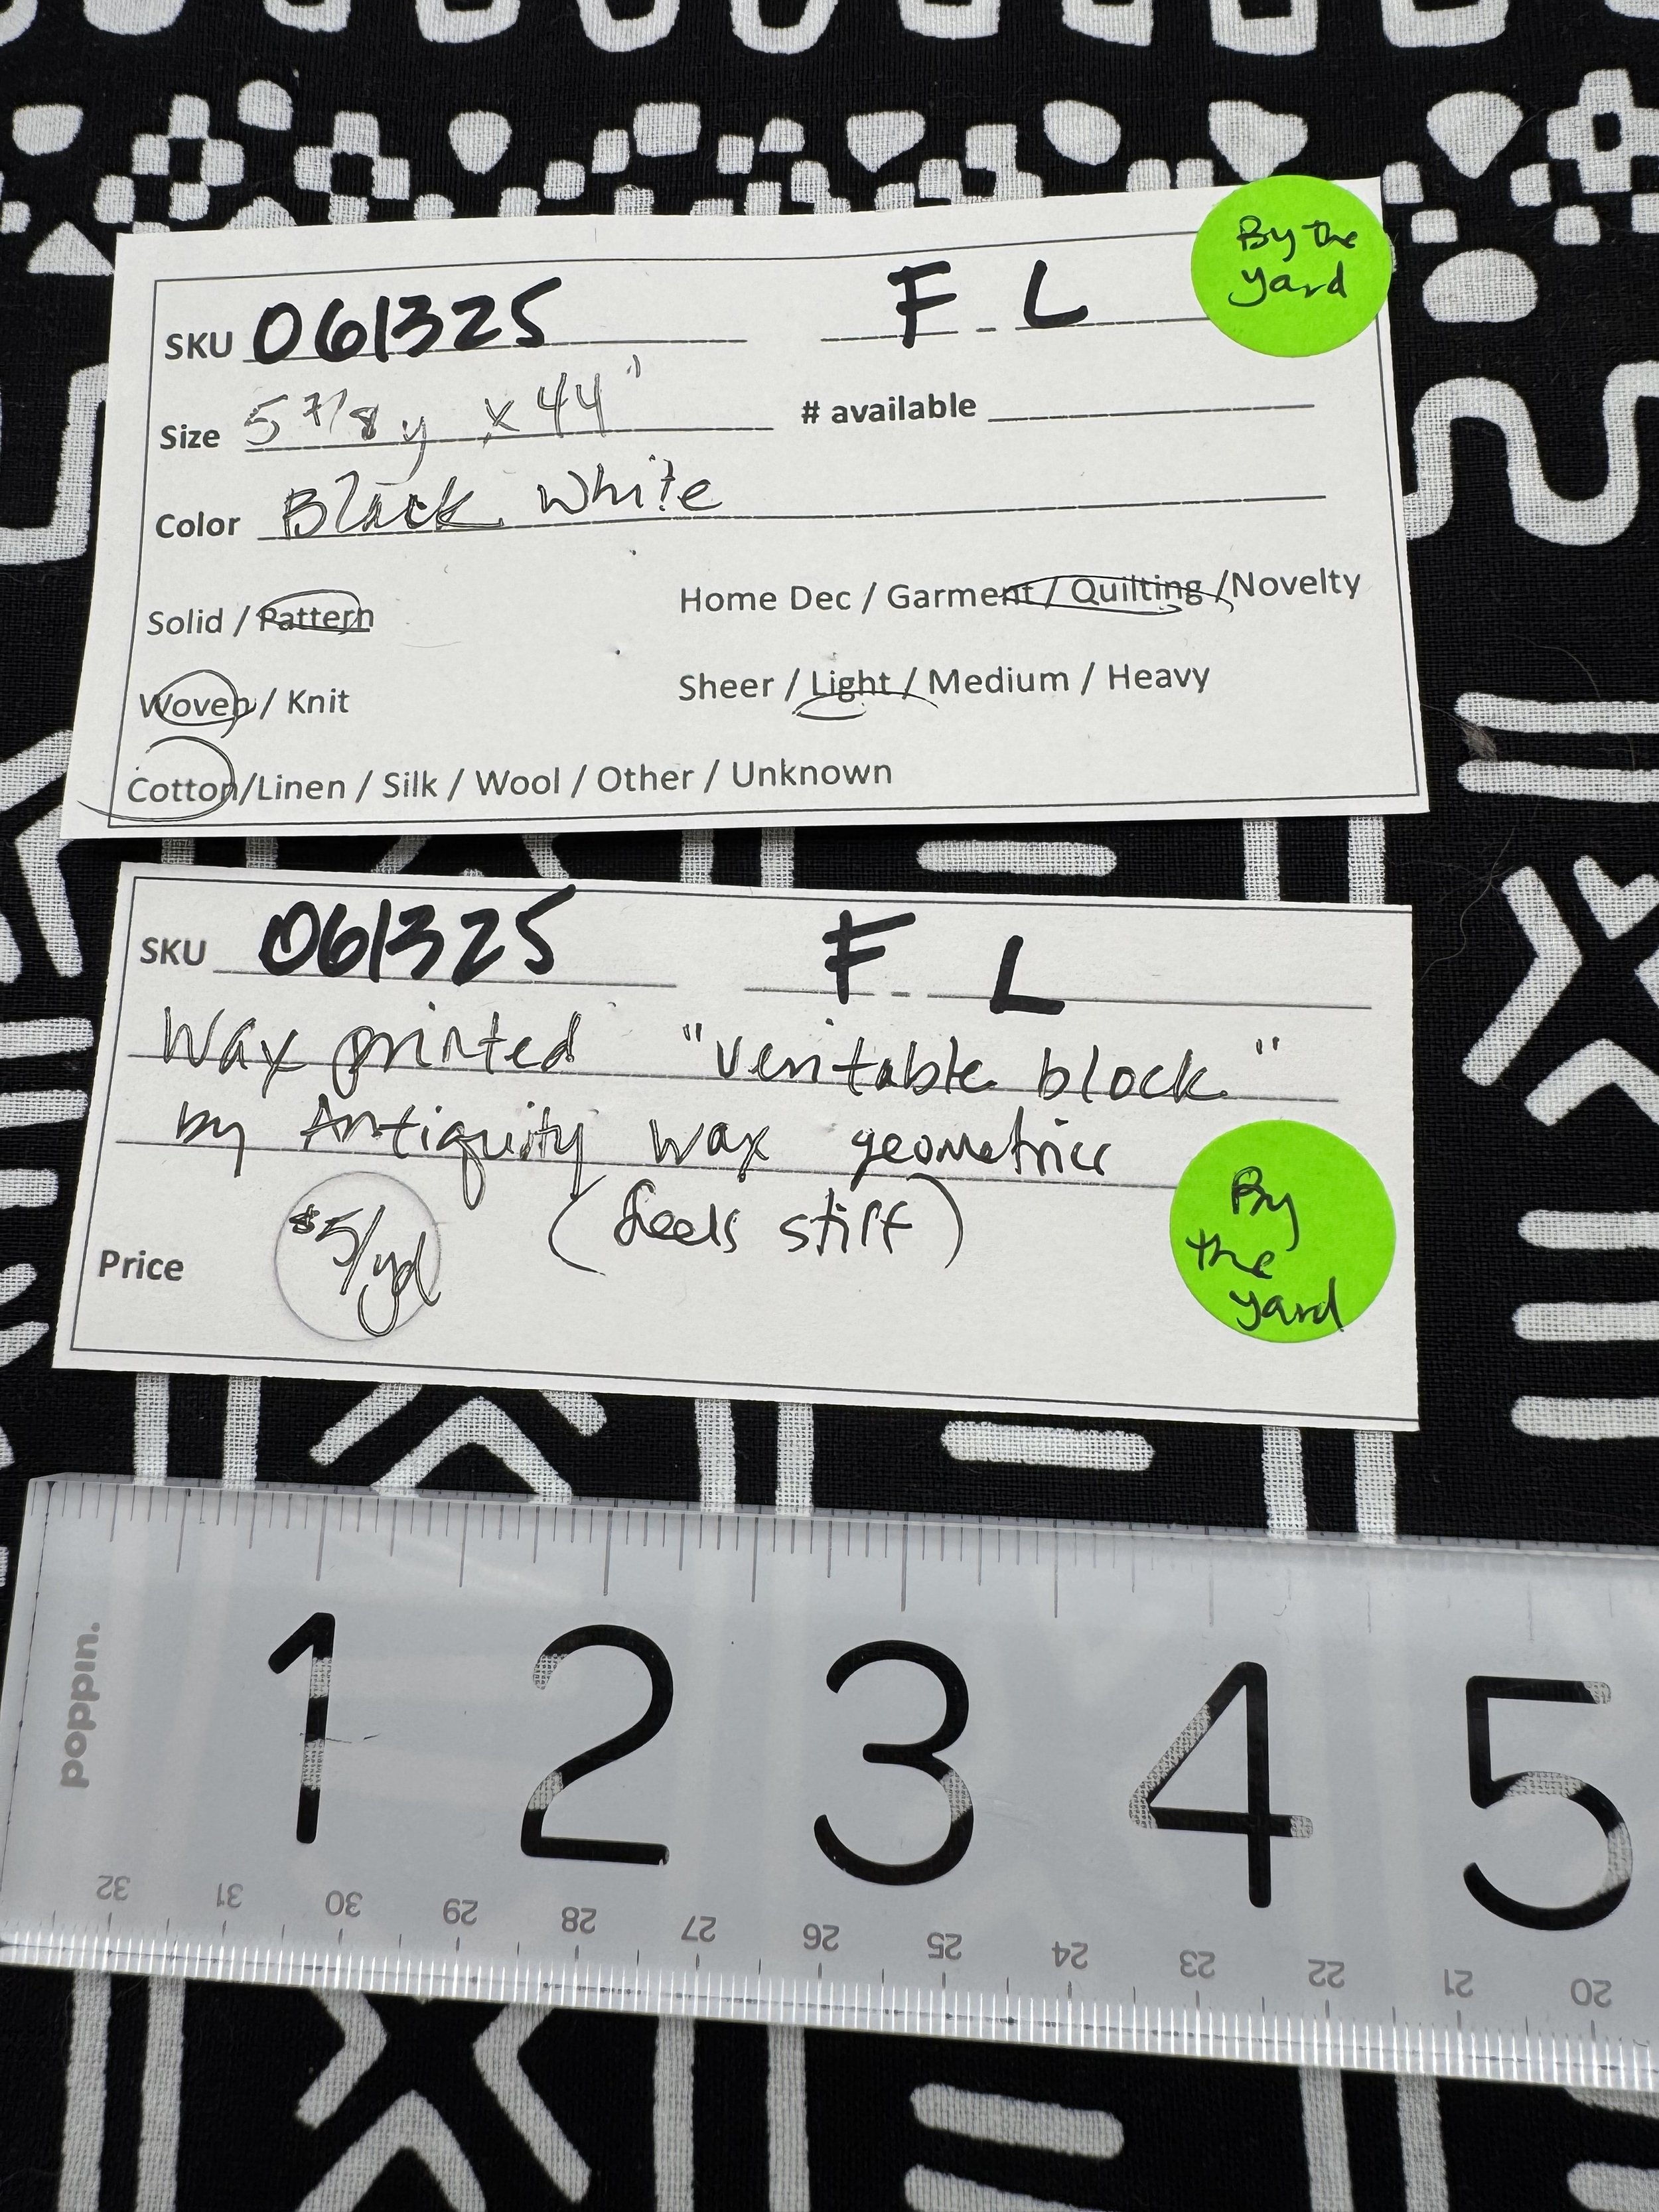 By the
yard
SKU 061325 F - L
Size 5 7/8 y x 44" # available
Color Black White
Solid / Pattern Home Dec / Garment / Quilting / Novelty
Woven / Knit Sheer / Light / Medium / Heavy
Cotton/Linen / Silk / Wool / Other / Unknown
SKU 061325 F - L
Wax printed "veritable block"
by Antiquity wax geometrics
(feels stiff)
Price $5/yd
By
the
yard
poppin.
1 2 3 4 5
32 31 30 29 28 27 26 25 24 23 22 21 20